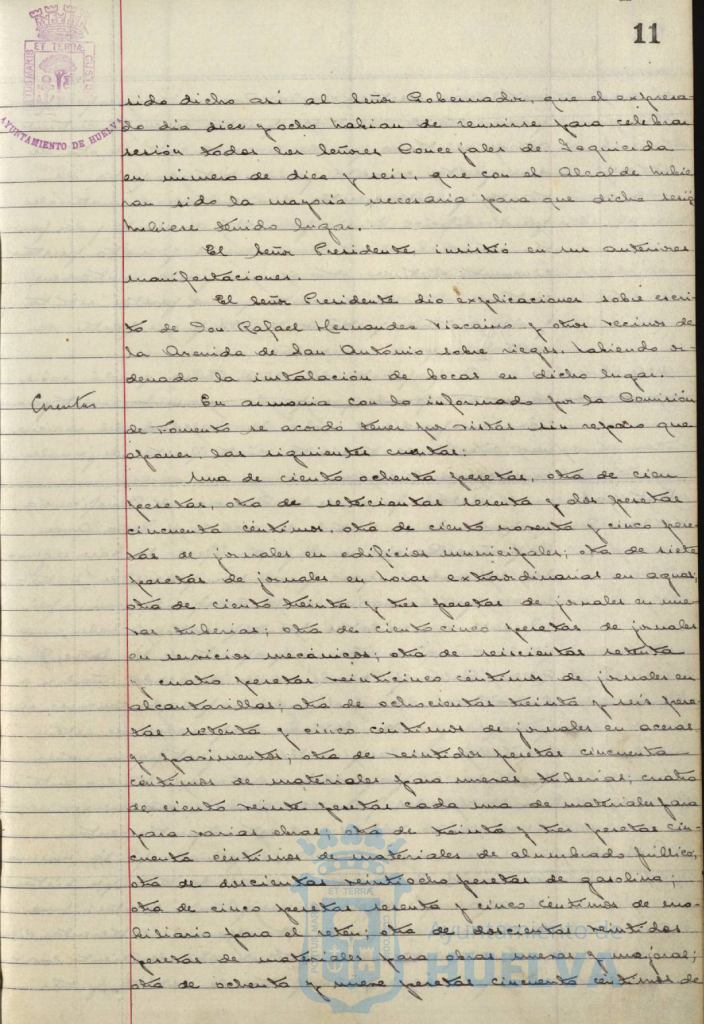 11
ET TERRÆ
AYUNTAMIENTO DE HUELVA
sido dicho así al Señor Gobernador, que el expresa-
do día diez y ocho habían de reunirse para celebrar
sesión todos los Señores Concejales de Izquierda
en número de diez y seis, que con el Alcalde hubie
ran sido la mayoría necesaria para que dicha sesión
hubiese tenido lugar.
El Señor Presidente insistió en sus anteriores
manifestaciones.
El Señor Presidente dio explicaciones sobre escri-
to de Don Rafael Hernandez Viscaino y otros vecinos de
la Avenida de San Antonio sobre riegos, habiendo or-
denado la instalación de bocas en dicho lugar.
Cuentas
En armonia con lo informado por la Comisión
de Fomento se acordó tener por vistas sin reparo que
oponer, las siguientes cuentas:
Una de ciento ochenta pesetas, otra de cien
pesetas, otra de setecientas sesenta y dos pesetas
cincuenta céntimos, otra de ciento noventa y cinco pese-
tas de jornales en edificios municipales; otra de siete
pesetas de jornales en horas extraordinarias en aguas;
otra de ciento treinta y tres pesetas de jornales en nue-
vas tuberias; otra de ciento cinco pesetas de jornales
en servicios mecánicos; otra de seiscientas setenta
y cuatro pesetas veinticinco céntimos de jornales en
alcantarillas; otra de ochocientas treinta y seis pese-
tas setenta y cinco céntimos de jornales en aceras
y pavimentos; otra de veintidos pesetas cincuenta
céntimos de materiales para nuevas tuberias; cuatro
de ciento veinte pesetas cada una de materiales para
para varias obras; otra de treinta y tres pesetas cin-
cuenta céntimos de materiales de alumbrado público;
otra de doscientas veintiocho pesetas de gasolina;
otra de cinco pesetas sesenta y cinco céntimos de mo-
biliario para el retén; otra de doscientas veintidos
pesetas de materiales para obras nuevas y mejoras;
otra de ochenta y nueve pesetas cincuenta céntimos de
Ayuntamiento de
HUELVA